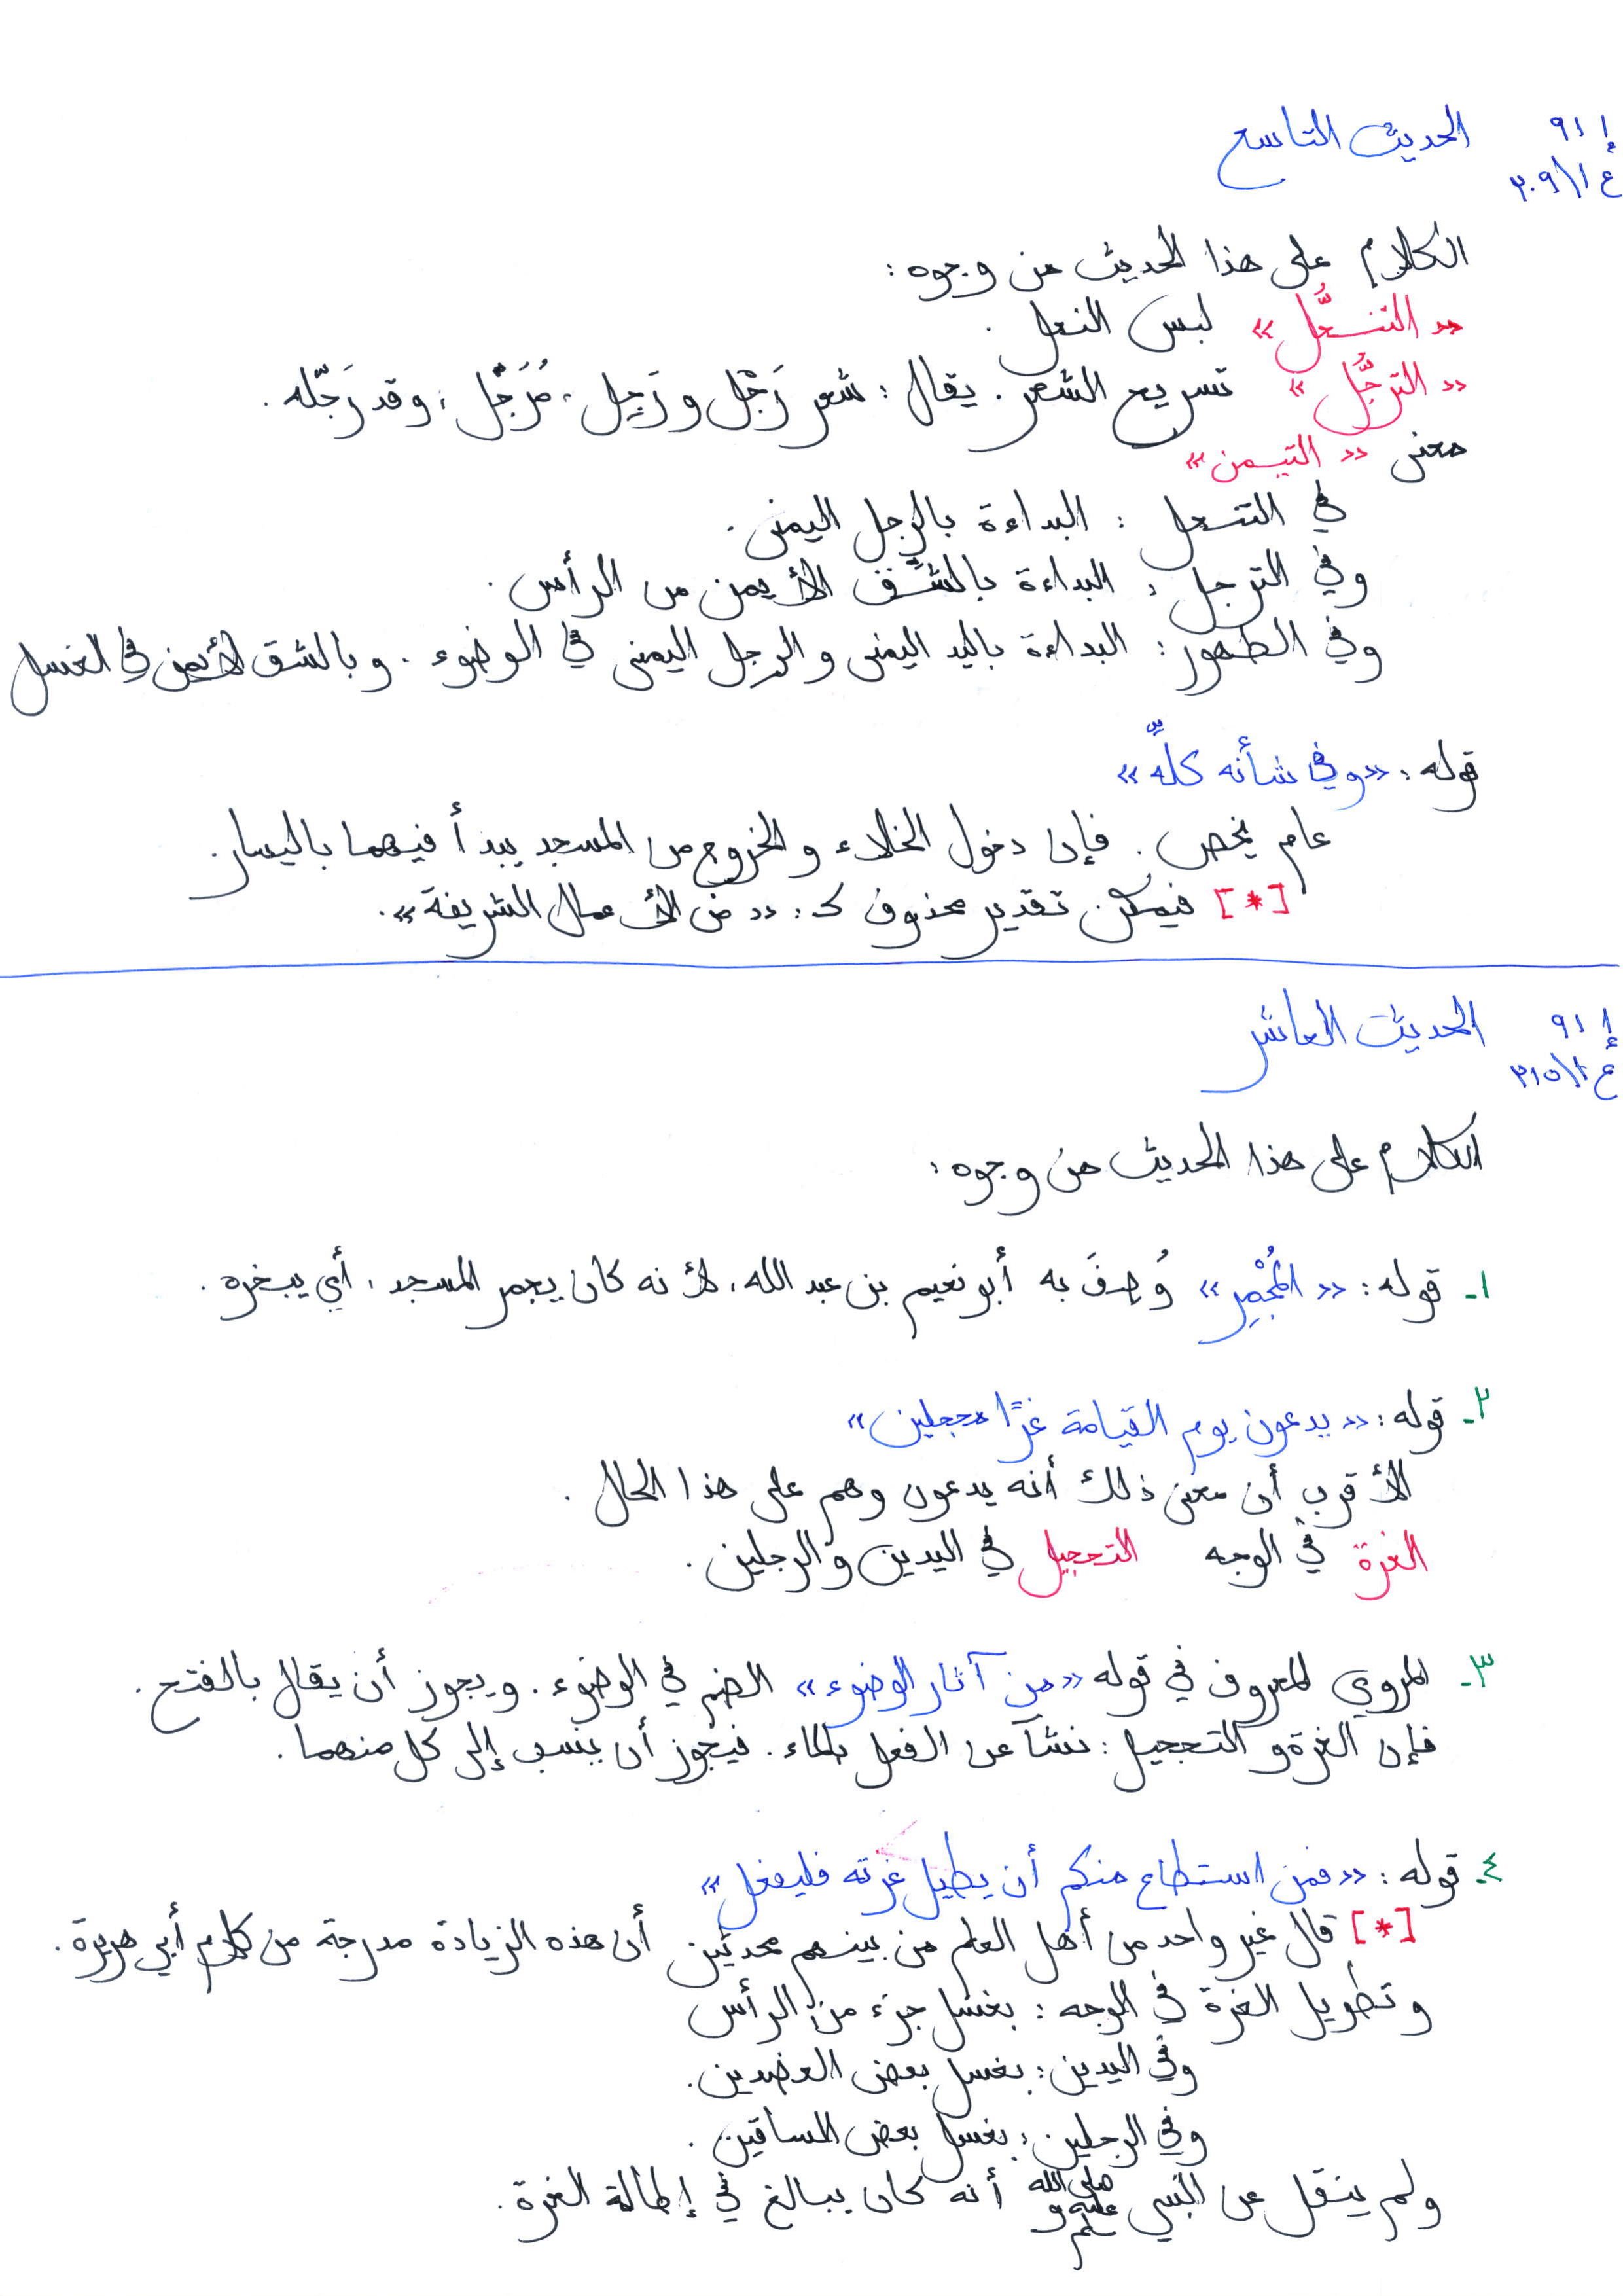 إ ٩١/١
الحديث التاسع
ع ٢٠٩/١
الكلام على هذا الحديث من وجوه :
« التنعُّل » لبس النعل .
« الترجُّل » تسريح الشعر . يقال : شعر رَجْل و رَجِل ، مُرَجَّل ، وقد رَجّله .
معنى « التيمن »
في التنعل : البداءة بالرجل اليمنى .
وفي الترجل : البداءة بالشِّق الأيمن من الرأس .
وفي الطهور : البداءة باليد اليمنى والرجل اليمنى في الوضوء . وبالشق الأيمن في الغسل
قوله : « وفي شأنه كلِّه »
عام يخص . فإن دخول الخلاء والخروج من المسجد يبدأ فيهما باليسار .
[*] فيمكن تقدير محذوف كـ : « من الأعمال الشريفة » .
إ ٩١/١
الحديث العاشر
ع ٢١٥/١
الكلام على هذا الحديث من وجوه :
١- قوله : « المُجْمِر » وُصِفَ به أبو نعيم بن عبد الله ، لأنه كان يجمر المسجد ، أي يبخره .
٢- قوله : « يدعون يوم القيامة غرًّا محجلين »
الأقرب أن معنى ذلك أنه يدعون وهم على هذا الحال .
الغرة في الوجه التحجيل في اليدين والرجلين .
٣- المروي المعروف في قوله « من آثار الوضوء » الضم في الوضوء . ويجوز أن يقال بالفتح .
فإن الغرة والتحجيل : نشآ عن الفعل بالماء . فيجوز أن ينسب إلى كل منهما .
٤- قوله : « فمن استطاع منكم أن يطيل غرته فليفعل »
[*] قال غير واحد من أهل العلم من بينهم محدثين أن هذه الزيادة مدرجة من كلام أبي هريرة .
و تطويل الغرة في الوجه : بغسل جزء من الرأس
وفي اليدين : بغسل بعض العضدين .
وفي الرجلين : بغسل بعض الساقين .
ولم ينقل عن النبي صلى الله عليه و سلم أنه كان يبالغ في إطالة الغرة .